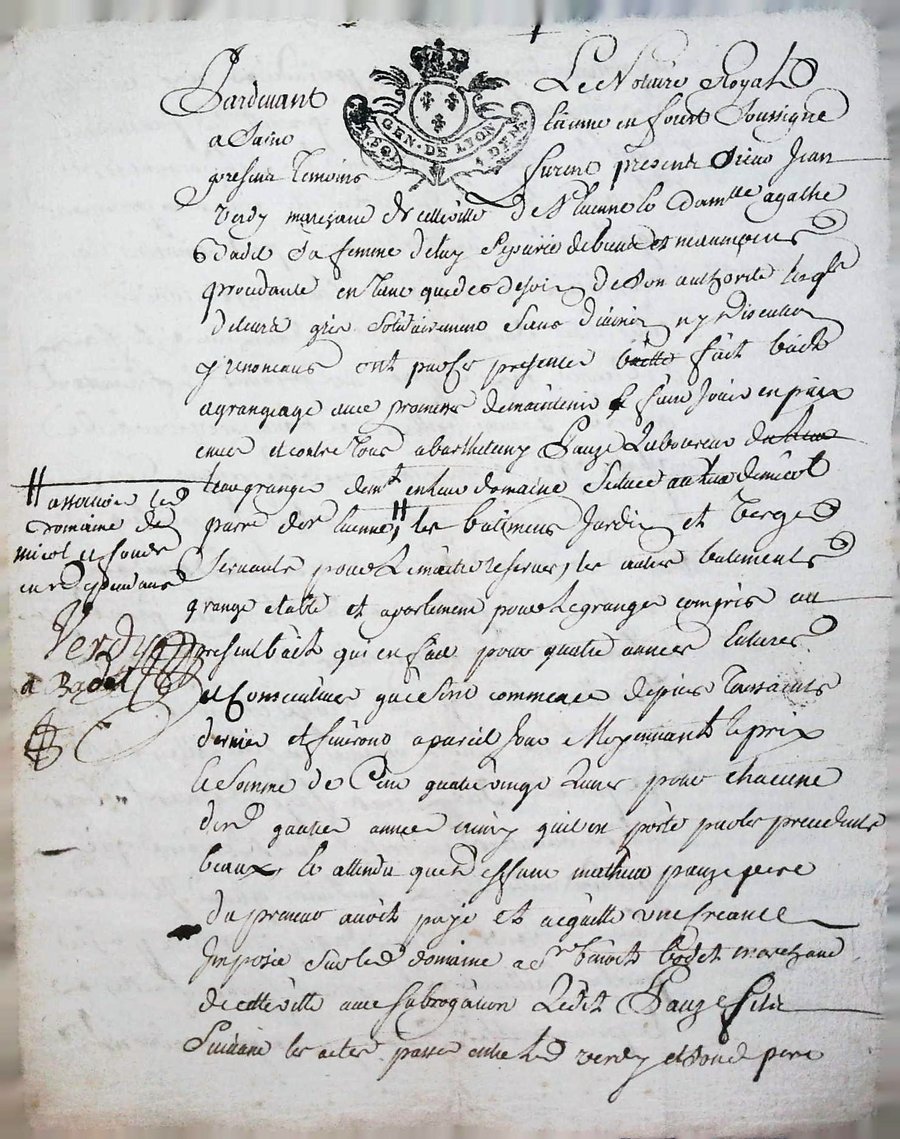 Pardevant Le Notaire Royal
GEN. DE LYON
a Saint Etienne en forest Soussigné
presents temoins furent presents Sieur Jean
Verdy marchand de cette ville de St Etienne & Damlle agathe
Badet Sa femme de luy Separée de biens
procedante en tant que de besoin de Son authorité lesqls
de leurs grés Solidairement Sans division ny discution
y renonceans ont par ces presentes baille fait bail
a grangeage avec promesse de maintenir & faire Jouir en paix
envers et contre tous a Barthelemy Pauze Laboureur
granger demt en leur domaine Situé au lieu de micol
parre de St Etienne, les batimens Jardin et Verger
Servants pour Le maitre reserves, les autres batiments
grange etable et apartement pour Le granger compris au
present bail qui est fait pour quatre années entieres
et Consecutives qui ont commencé depuis toussaints
dernier et finiront a pareil Jour Moyennant le prix
& Somme de Cent quatre vingt Livres pour chacune
desd quatre années ainsy qu'il en porté par les precedents
beaux, & attendu que
mathieu pauze pere
du preneur avoit payé et acquitté une creance
Imposée Sur led domaine a Sr benoit badet marchand
de cette ville avec Subrogation Ledit Pauze fils
Suivant les actes passés entre led Verdy et Sond pere
domaine de
micol et fonds
en dependans
Verdy
a Badet